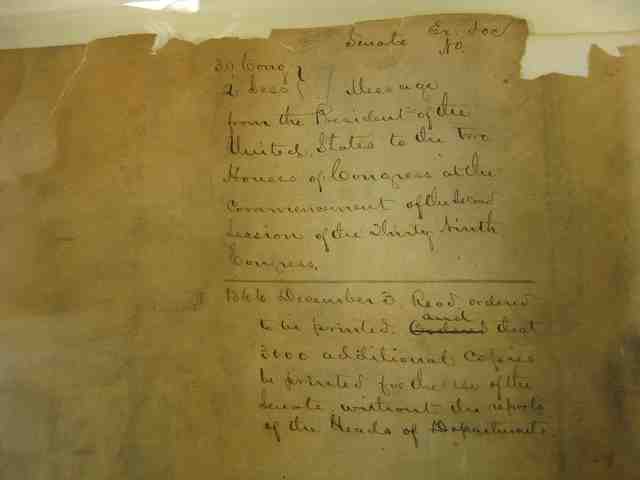 Senate Ex. Doc
No.
39 Cong.
2. Sess } Message
from the President of the
United States to the two
Houses of Congress at the
Commencement of the Second
Session of the Thirty Ninth
Congress.
1866 December 3 Read, ordered
to be printed, and
Ordered that
3000 additional copies
be printed for the use of the
Senate, without the reports
of the Heads of Departments.